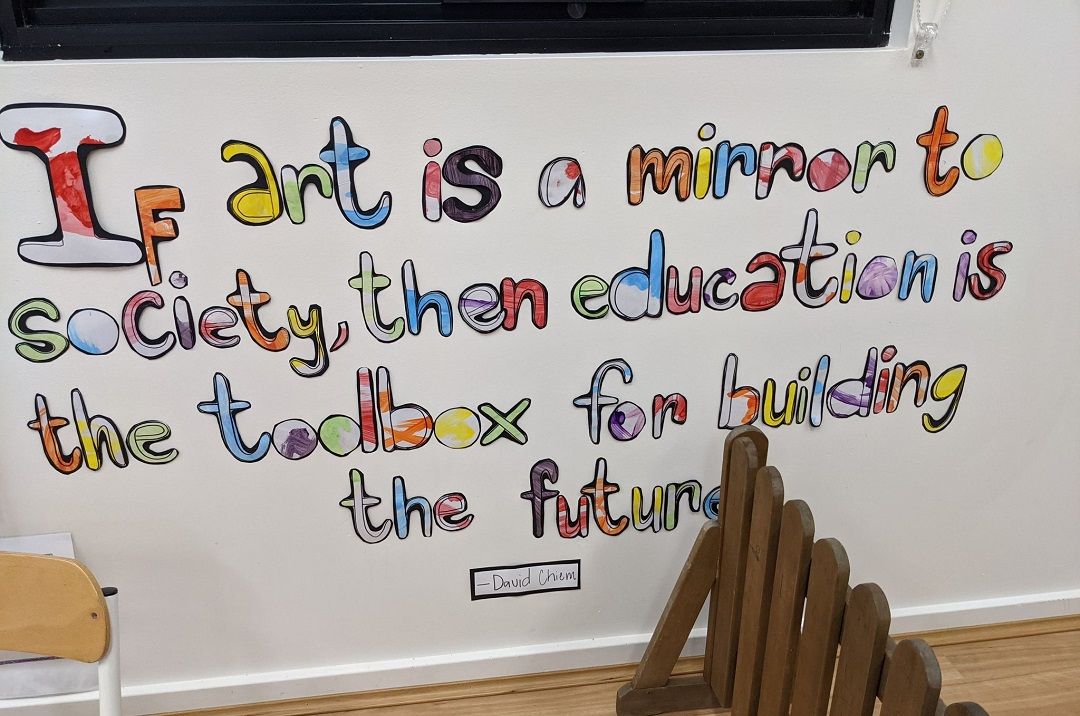 IF art is a mirror to
society, then education is
the toolbox for building
the future
—David Chiem